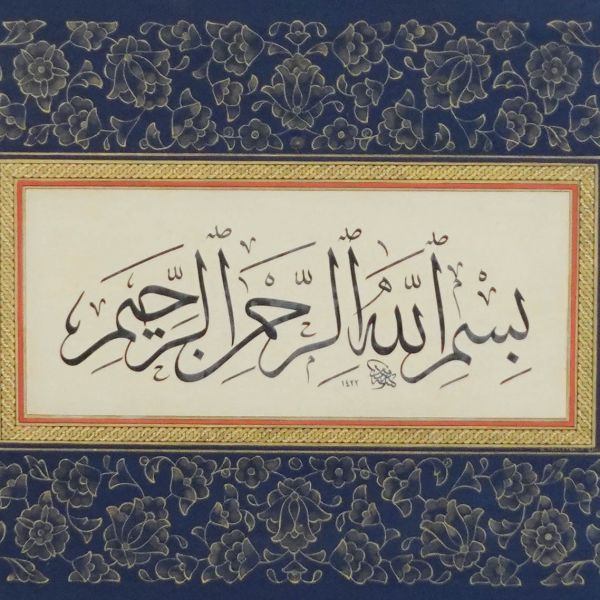 بِسْمِ اللّٰهِ الرَّحْمٰنِ الرَّحِيمِ
١٤٢٢